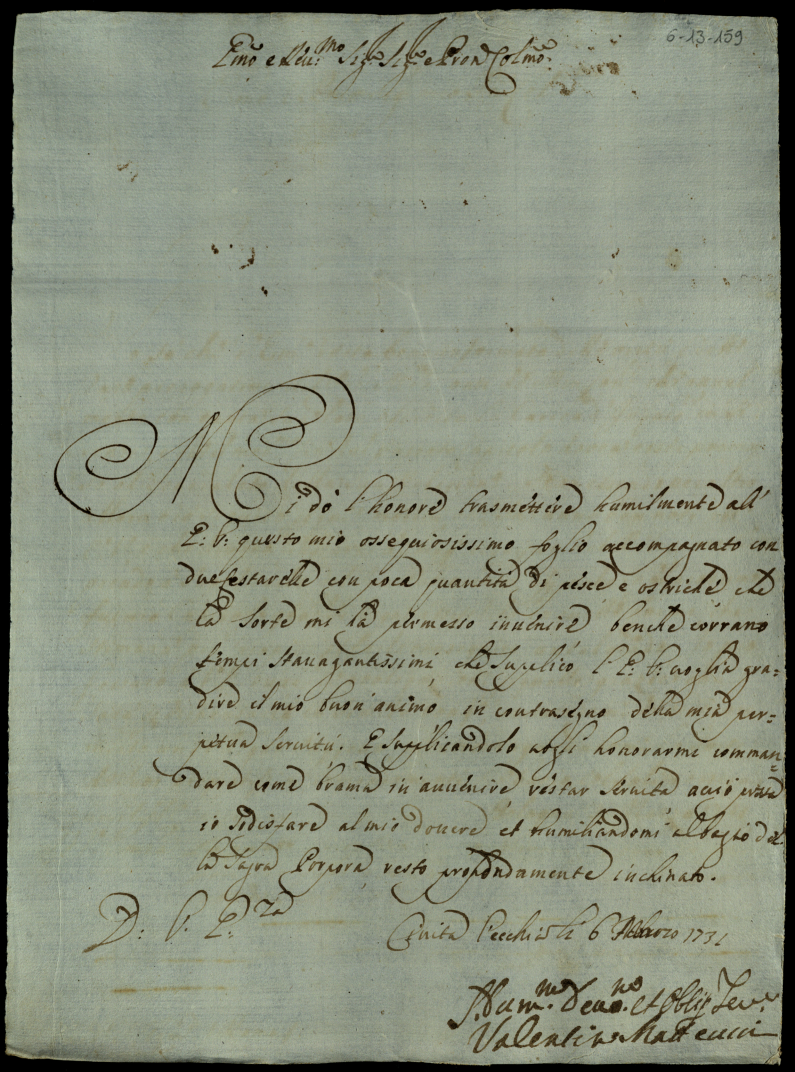 6-13-159
Emõ e Reu.mo Sig.r Sig.r e Pron Colmõ.
Mi dò l'honore trasmettere humilmente all'
E: V: questo mio ossequiosissimo foglio accompagnato con
due cestarelle con poca quantità di pesce e ostriche che
la sorte mi hà permesso inuenire benche corrano
tempi strauagantissimi che supplico l'E: V: uoglia gra=
dire il mio buon animo in contrasegno della mia per=
petua seruitù. E supplicandolo uogli honorarmi comman=
dare come brama in auuenire restar seruita acciò possa
io sodisfare al mio douere et humiliandomi al bagio del
la Sagra Porpora resto profondamente inchinato.
D: V: E.za
Ciuita Vecchia li 6 Marzo 1731
Hum.mo Deuo.mo et Oblig Seu.r
Valentino Matteucci